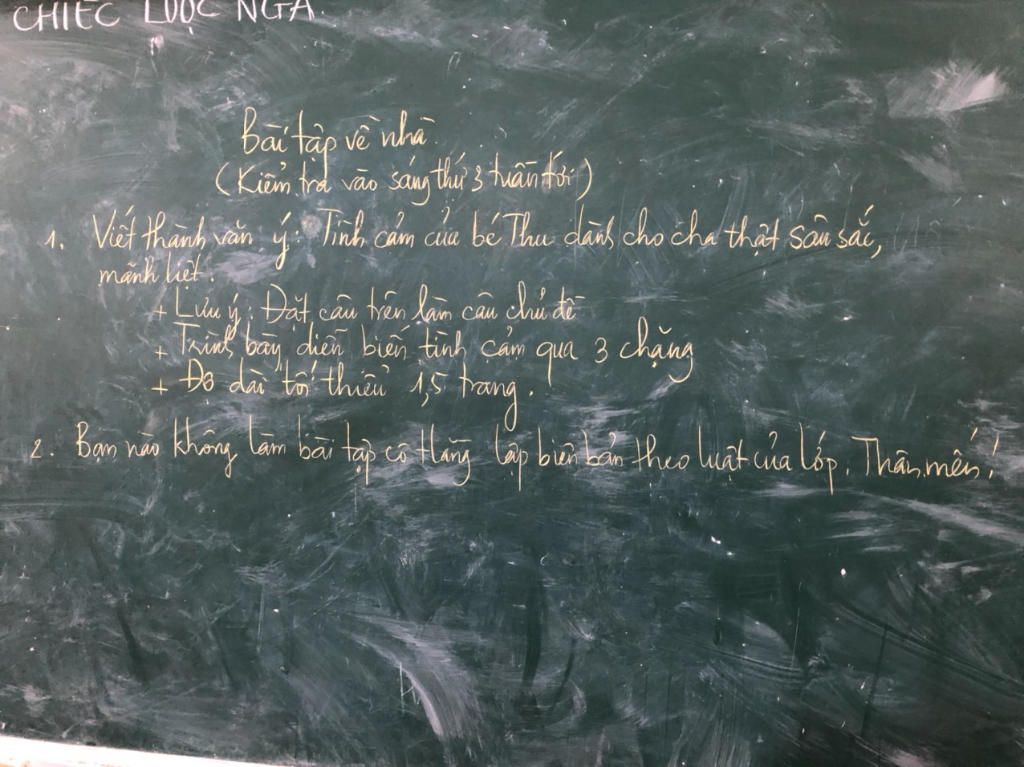 CHIẾC LƯỢC NGÀ.
Bài tập về nhà.
(Kiểm tra vào sáng thứ 3 tuần tới)
1. Viết thành văn ý: Tình cảm của bé Thu dành cho cha thật sâu sắc,
mãnh liệt.
+ Lưu ý: Đặt câu trên làm câu chủ đề
+ Trình bày diễn biến tình cảm qua 3 chặng
+ Độ dài tối thiểu 1,5 trang.
2. Bạn nào không làm bài tập cô Hằng lập biên bản theo luật của lớp. Thân mến!